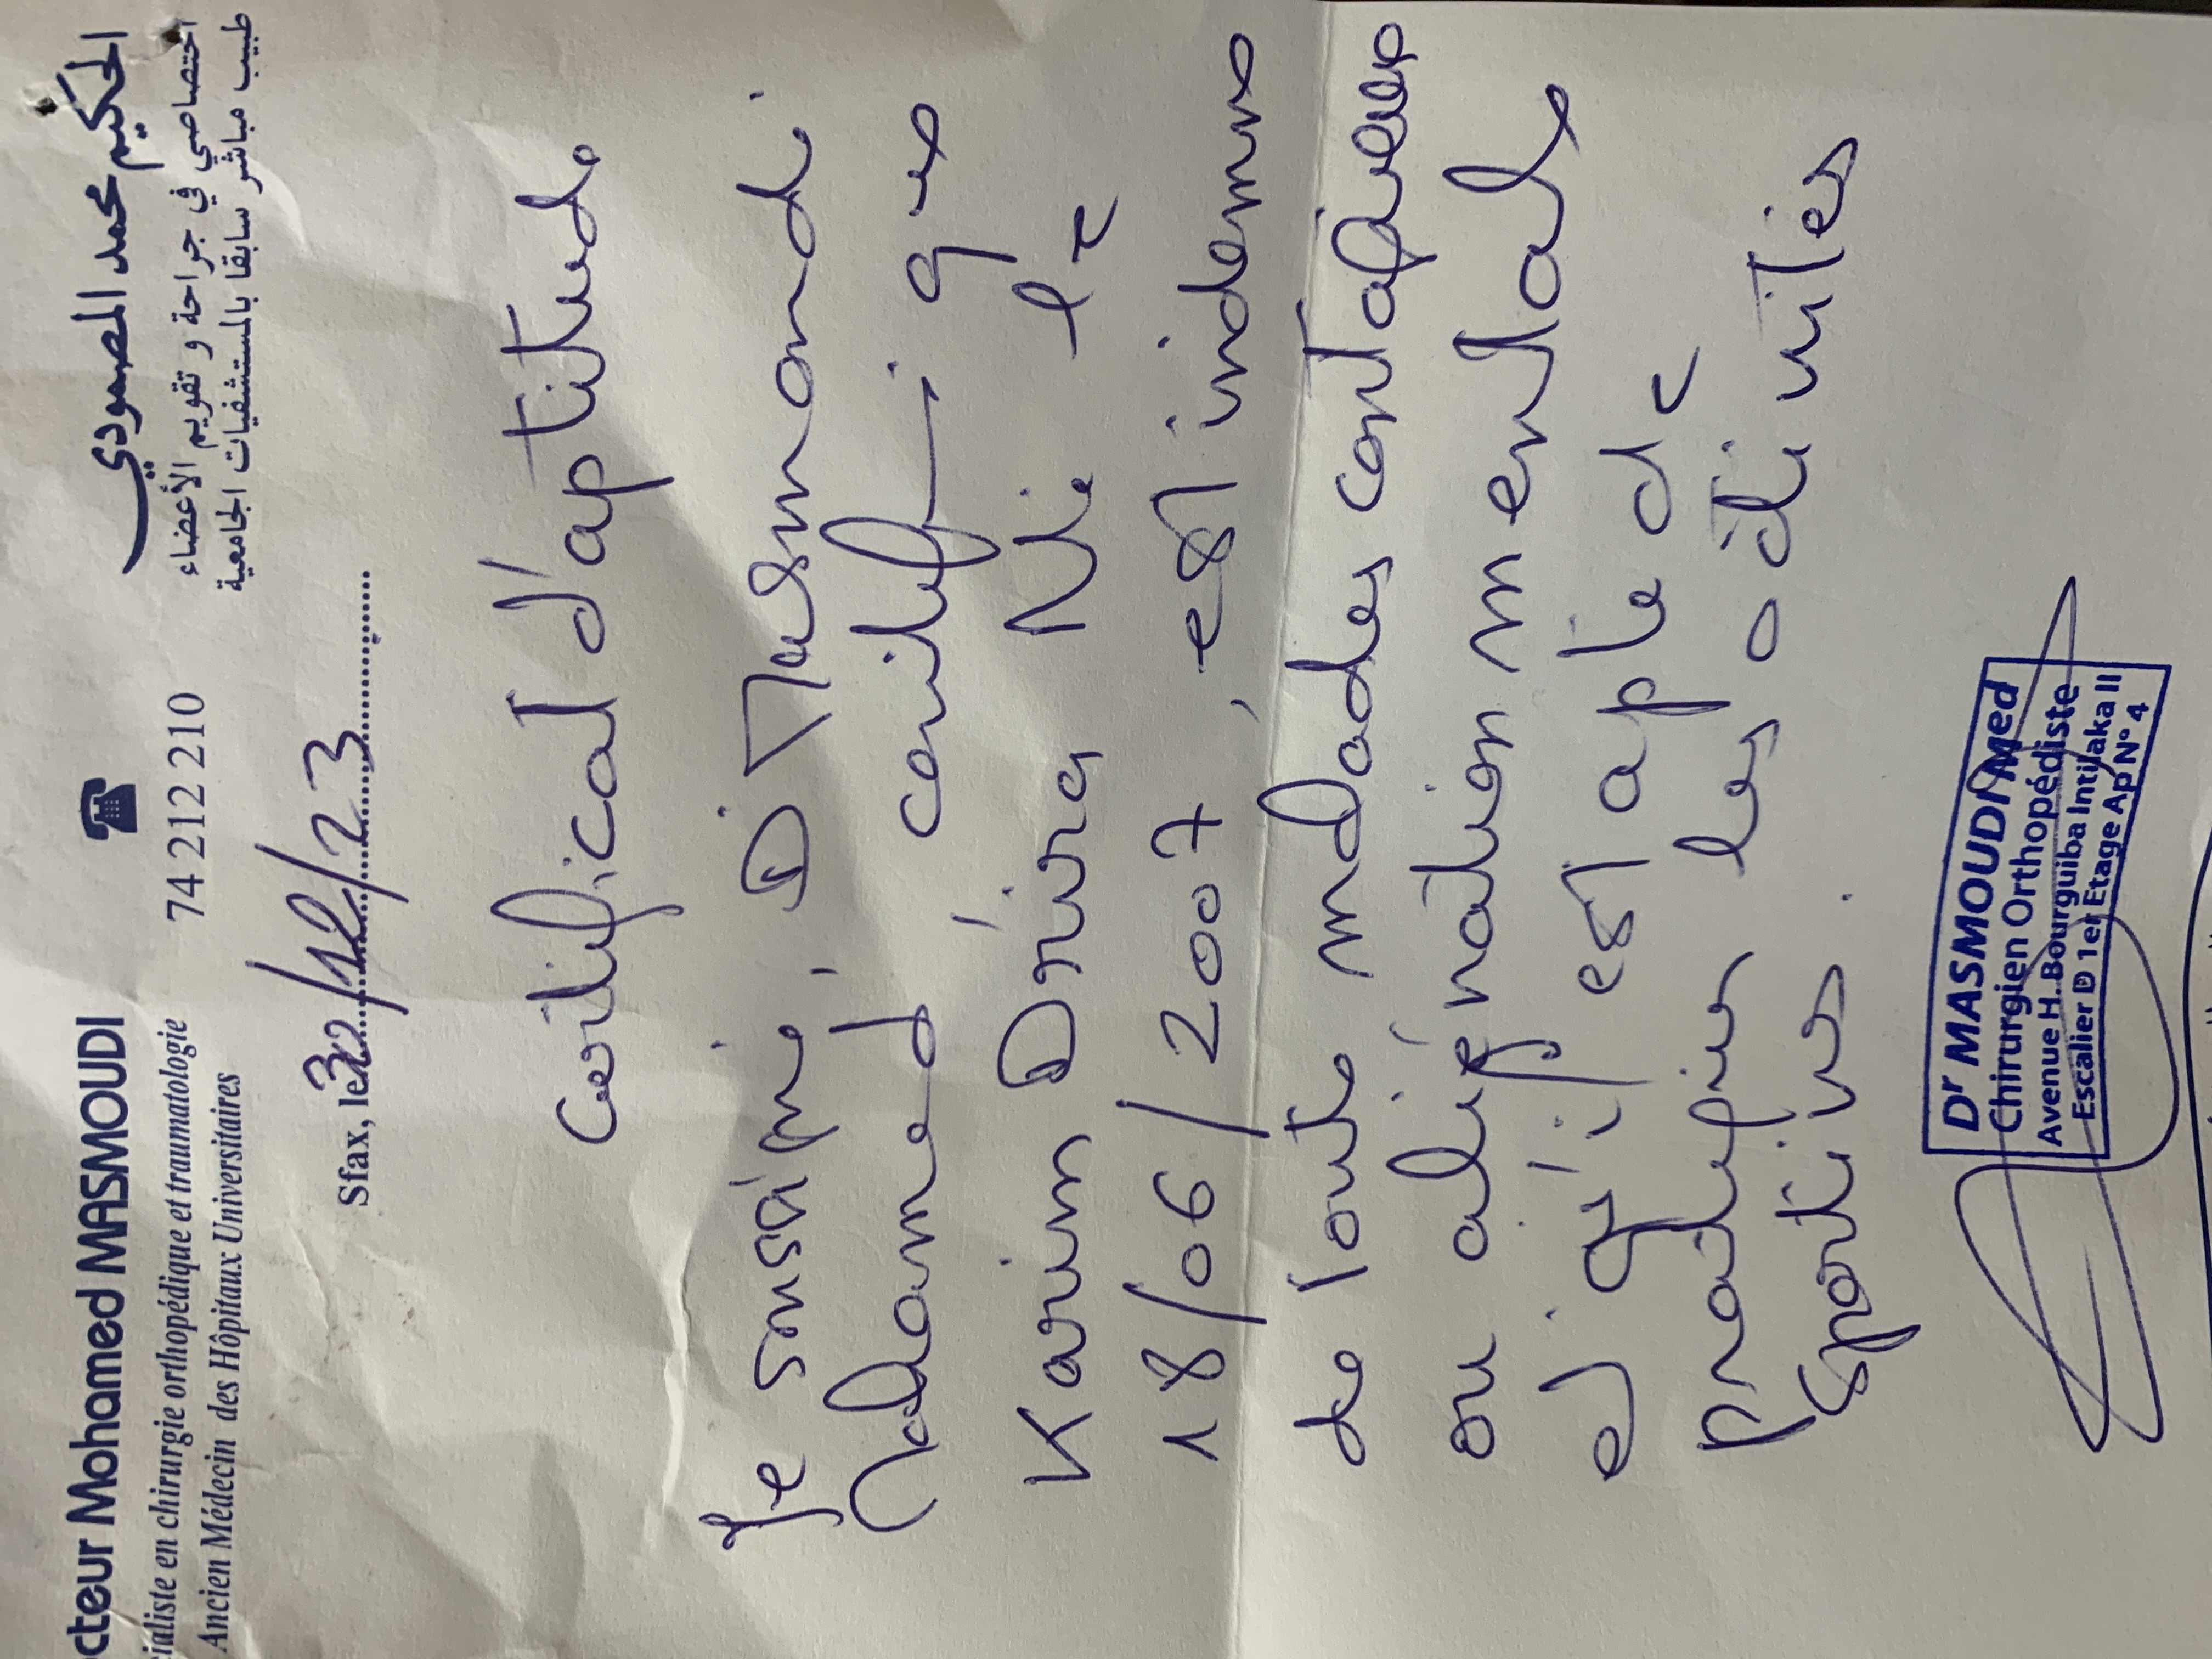 cteur Mohamed MASMOUDI
ialiste en chirurgie orthopédique et traumatologie
Ancien Médecin des Hôpitaux Universitaires
☎
74 212 210
الحكيم محمد المصمودي
اختصاصي في جراحة و تقويم الأعضاء
طبيب مباشر سابقا بالمستشفيات الجامعية
Sfax, le 30/12/23
Certificat d'aptitude
Je soussigné, Dr Masmoudi
Mohamed, certifie que
Karim Drira Né le
18/06/2007, est indemne
de toute maladies contagieuse
ou aliénation mentale
et qu'il est apte de
pratiquer les activités
sportives.
Dr MASMOUDI Med
Chirurgien Orthopédiste
Avenue H. Bourguiba Intilaka II
Escalier D 1er Etage Ap N° 4